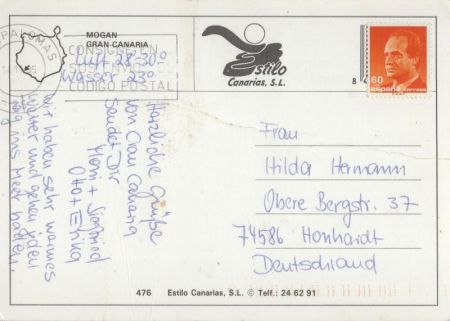 MOGAN
GRAN CANARIA
PALOMAS
CONSIGNE EN
CODIGO POSTAL
Luft 28-30°
Wasser 23°
Herzliche Grüße
von Gran Canaria
sendet Dir
Otto + Erika
wir haben sehr warmes
Wetter und gehen jeden
Tag ins Meer baden.
Estilo
Canarias, S.L.
8
60
españa correos
Frau
Hilda Hermann
Obere Bergstr. 37
74586 Honhardt
Deutschland
476 Estilo Canarias, S.L. © Telf.: 24 62 91